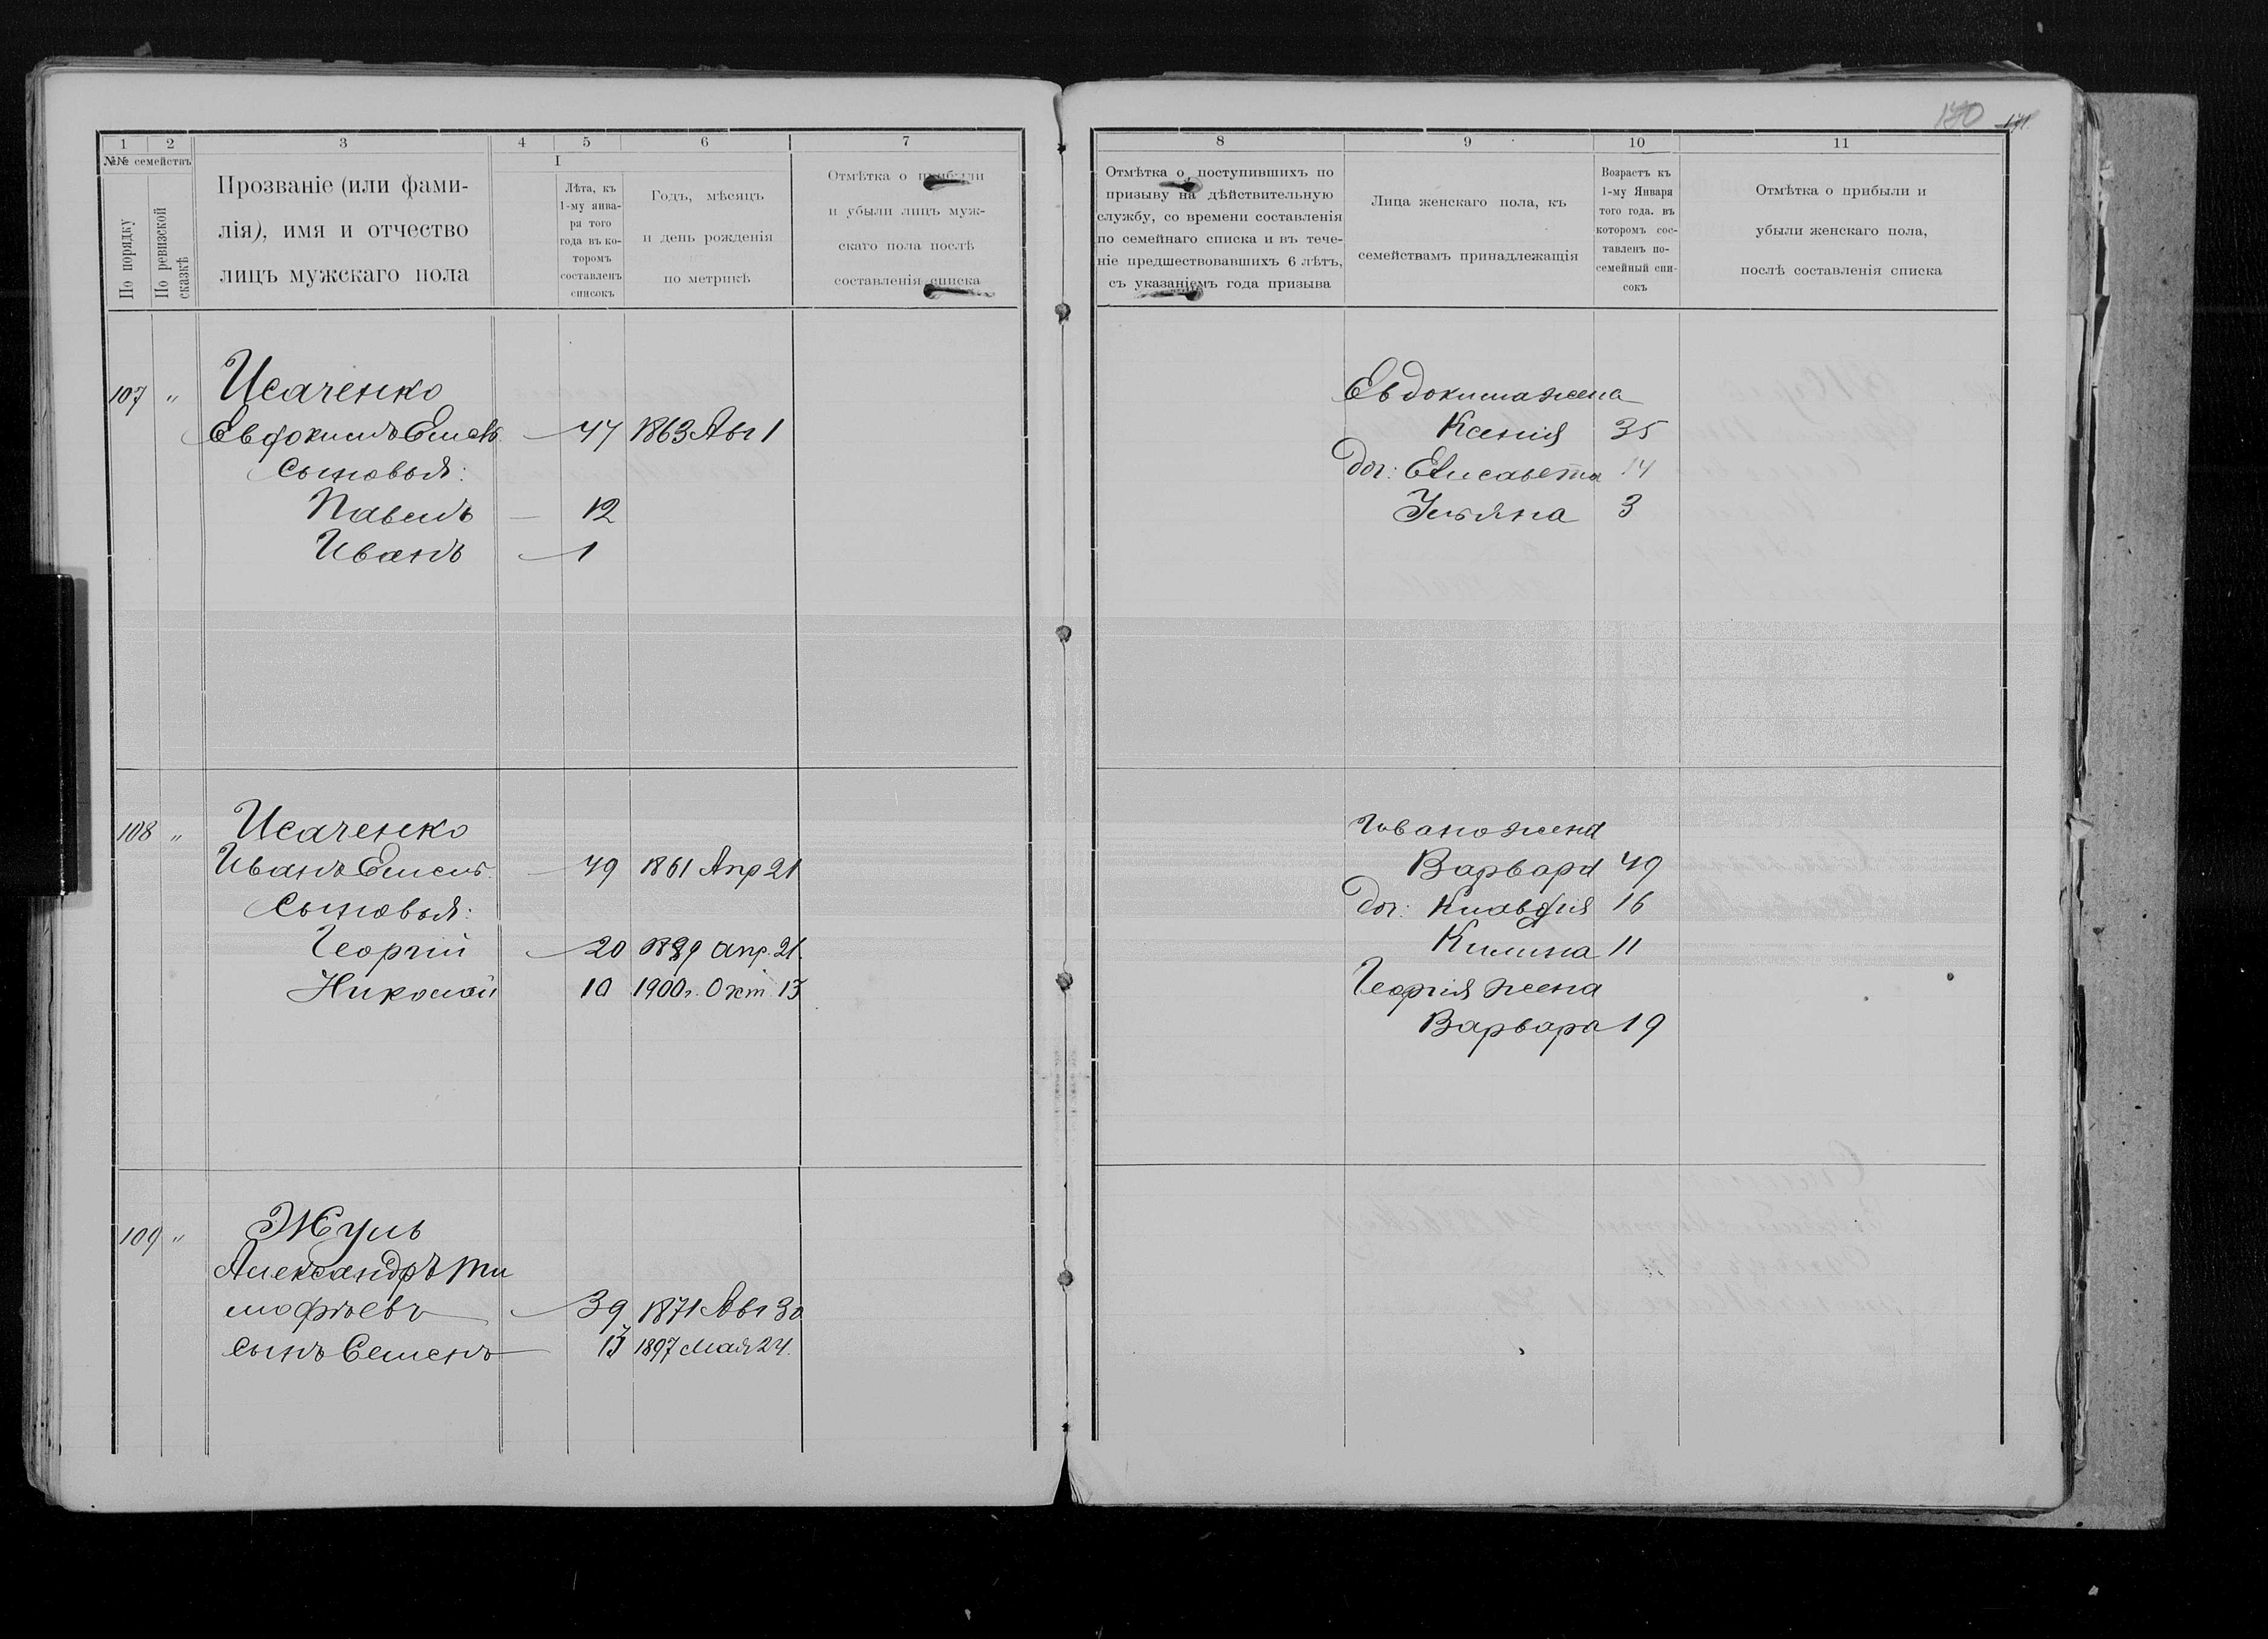 170 171
1 2 3 4 5 6 7
№№ семействъ
По порядку
По ревизской сказкѣ
Прозваніе (или фами-
лія), имя и отчество
лицъ мужскаго пола
I
Лѣта, къ
1-му янва-
ря того
года въ ко-
торомъ
составленъ
списокъ
Годъ, мѣсяцъ
и день рожденія
по метрикѣ
Отмѣтка о прибыли
и убыли лицъ муж-
скаго пола послѣ
составленія списка
107 „ Исаченко
Евдокимъ Емел. 47 1863 Авг 1
Сыновья:
Павелъ — 12
Иванъ — 1
108 „ Исаченко
Иванъ Емел. — 49 1861 Апр 21
Сыновья:
Георгій — 20 1889 апр. 21
Николай 10 1900 г. Окт. 13
109 „ Жуль
Александръ Ти
мофѣевъ — 39 1871 Авг 30
сынъ Семенъ — 13 1897 Мая 24.
8 9 10 11
Отмѣтка о поступившихъ по
призыву на дѣйствительную
службу, со времени составленія
по семейнаго списка и въ тече-
ніе предшествовавшихъ 6 лѣтъ,
съ указаніемъ года призыва
Лица женскаго пола, къ
семействамъ принадлежащія
Возрастъ къ
1-му Января
того года. въ
которомъ сос-
тавленъ по-
семейный спи-
сокъ
Отмѣтка о прибыли и
убыли женскаго пола,
послѣ составленія списка
Евдокима жена
Ксенія 35
доч: Елисавета 14
Ульяна 3
Ивана жена
Варвара 49
доч: Клавдія 16
Килина 11
Георгія жена
Варвара 19